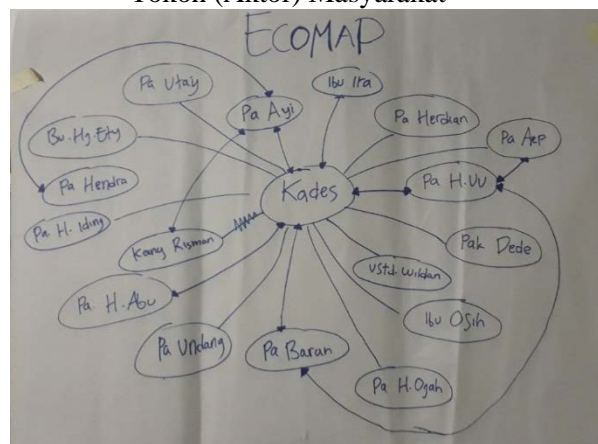 Tokoh (Aktor) Masyarakat
ECOMAP
Pa Utay
Ibu Ira
Pa Ayi
Pa Herdan
Bu. Hj. Ety
Pa Aep
Pa Hendra
Kades
Pa H. UU
Pa H. Iding
Kang Risman
Pak Dede
Ustd. Wildan
Pa. H. Abu
Ibu Osih
Pa Undang
Pa Baran
Pa H. Ogah